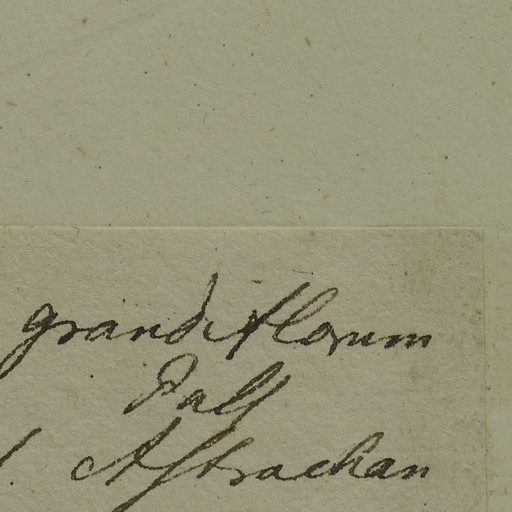 grandiflorum
Pall
. Astrachan